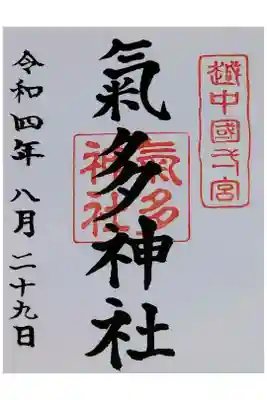 越中國弌宮
氣多神社
氣多
神社
令和四年 八月 二十九日